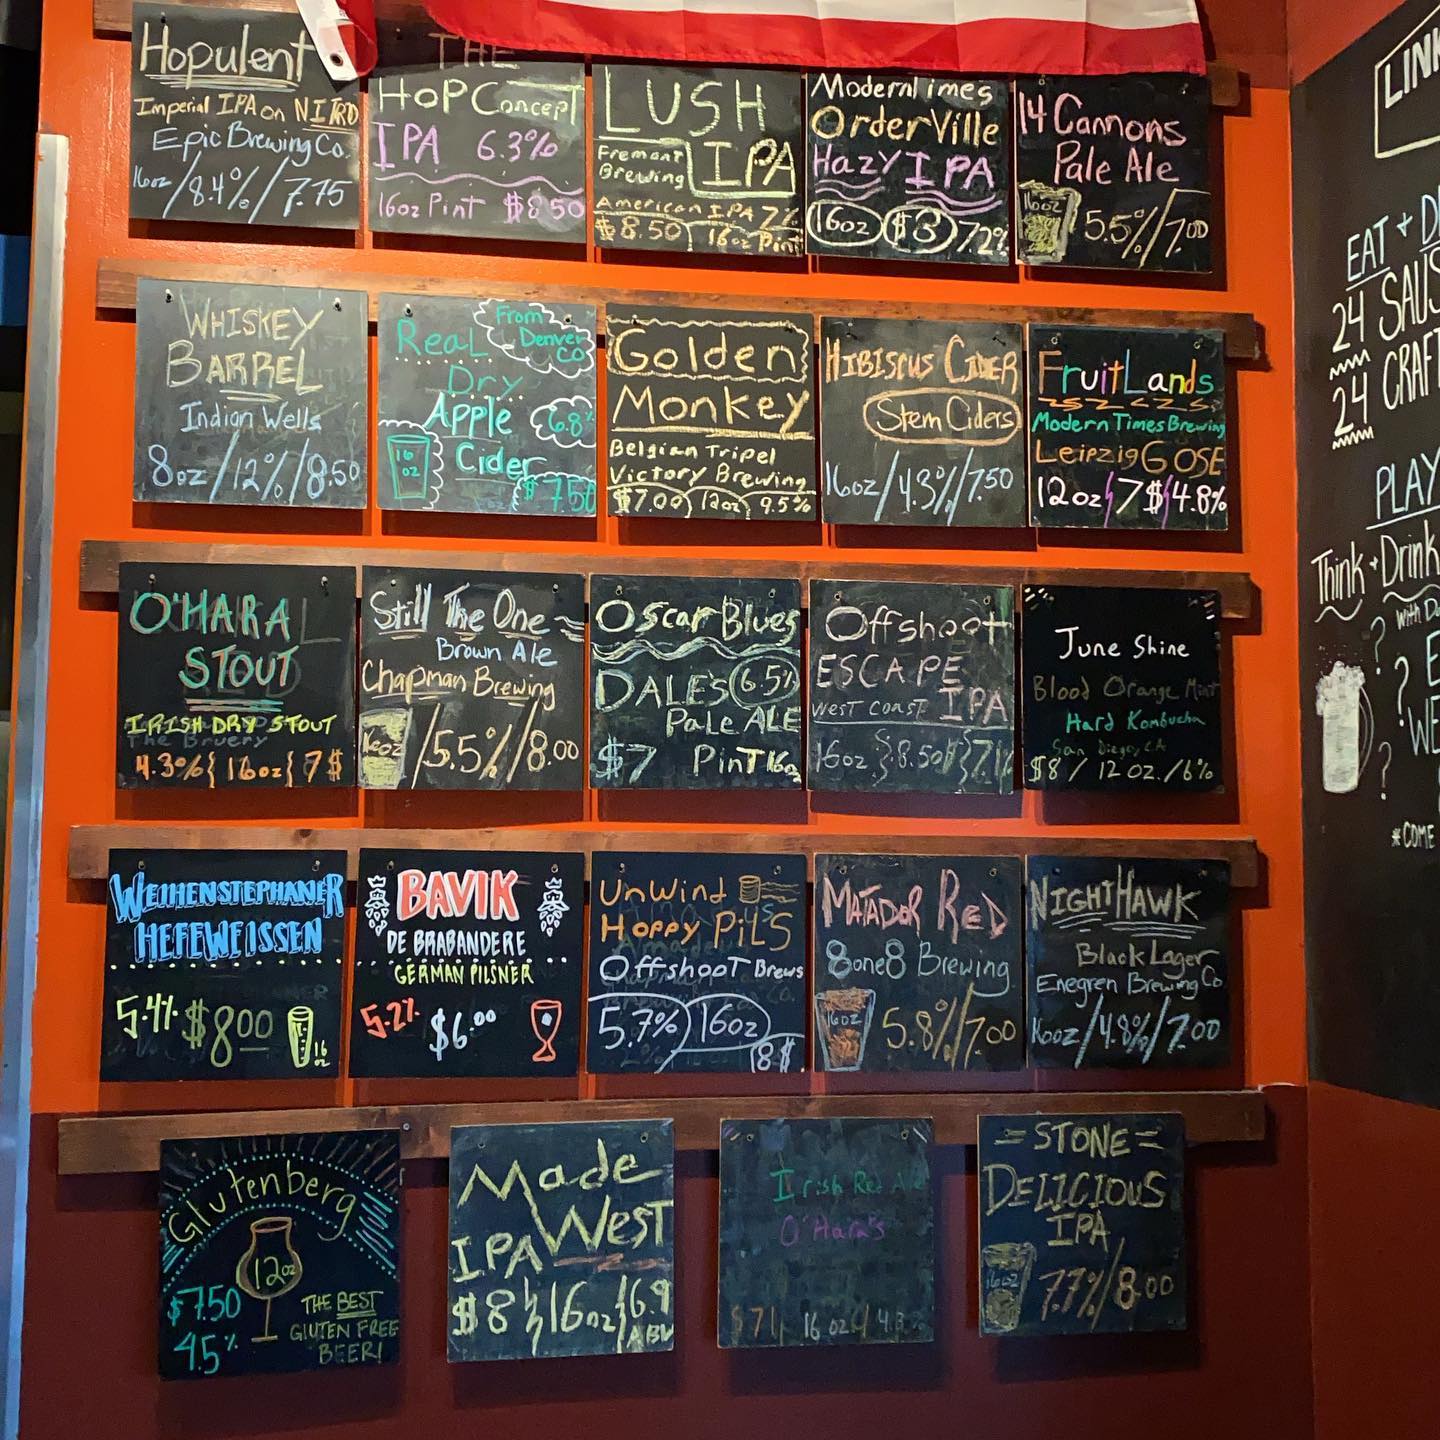 Hopulent
Imperial IPA on NITRO
Epic Brewing Co.
16oz/8.4%/7.75
THE
HOP Concept
IPA 6.3%
16oz Pint $8.50
LUSH
Fremont
Brewing
IPA
American IPA 7%
$8.50 16oz Pint
Modern Times
OrderVille
Hazy IPA
16oz $8 7.2%
14 Cannons
Pale Ale
16oz 5.5%/7.00
WHISKEY
BARREL
Indian Wells
8oz/12%/8.50
From
Denver
CO
Real
Dry
Apple 6.8%
Cider
16
oz
$7.50
Golden
Monkey
Belgian Tripel
Victory Brewing
$7.00 12oz 9.5%
HIBISCUS CIDER
Stem Ciders
16oz/4.3%/7.50
FruitLands
Modern Times Brewing
Leipzig GOSE
12oz/7$/4.8%
O'HARA
STOUT
IRISH DRY STOUT
The Bruery
4.3%{16oz{7$
Still The One
Brown Ale
Chapman Brewing
16oz/5.5%/8.00
Oscar Blues
DALE'S 6.5%
Pale ALE
$7 PinT 16oz
Offshoot
ESCAPE
WEST COAST IPA
16oz}8.50}7.1%
June Shine
Blood Orange Mint
Hard Kombucha
San Diego, CA
$8/12 OZ./6%
WEIHENSTEPHANER
HEFEWEISSEN
5.4% $8.00
16
oz
BAVIK
DE BRABANDERE
GERMAN PILSNER
5.2% $6.00
UnWind
Hoppy PiLS
Offshoot Brews
5.7% 16oz
8$
MATADOR RED
8one8 Brewing
16oz 5.8%/7.00
NIGHTHAWK
Black Lager
Enegren Brewing Co
16oz/4.8%/7.00
Glutenberg
12oz
$7.50
4.5%
THE BEST
GLUTEN FREE
BEER!
Made
West
IPA
$8}16oz}6.9
ABV
Irish Red Ale
O'Hara's
$7/ 16 oz/ 4.3%
=STONE=
DELICIOUS
IPA
16oz 7.7%/8.00
LINK
EAT + D
24 SAUS
24 CRAFT
PLAY
Think + Drink
with
?
?
?
E
WE
*COME